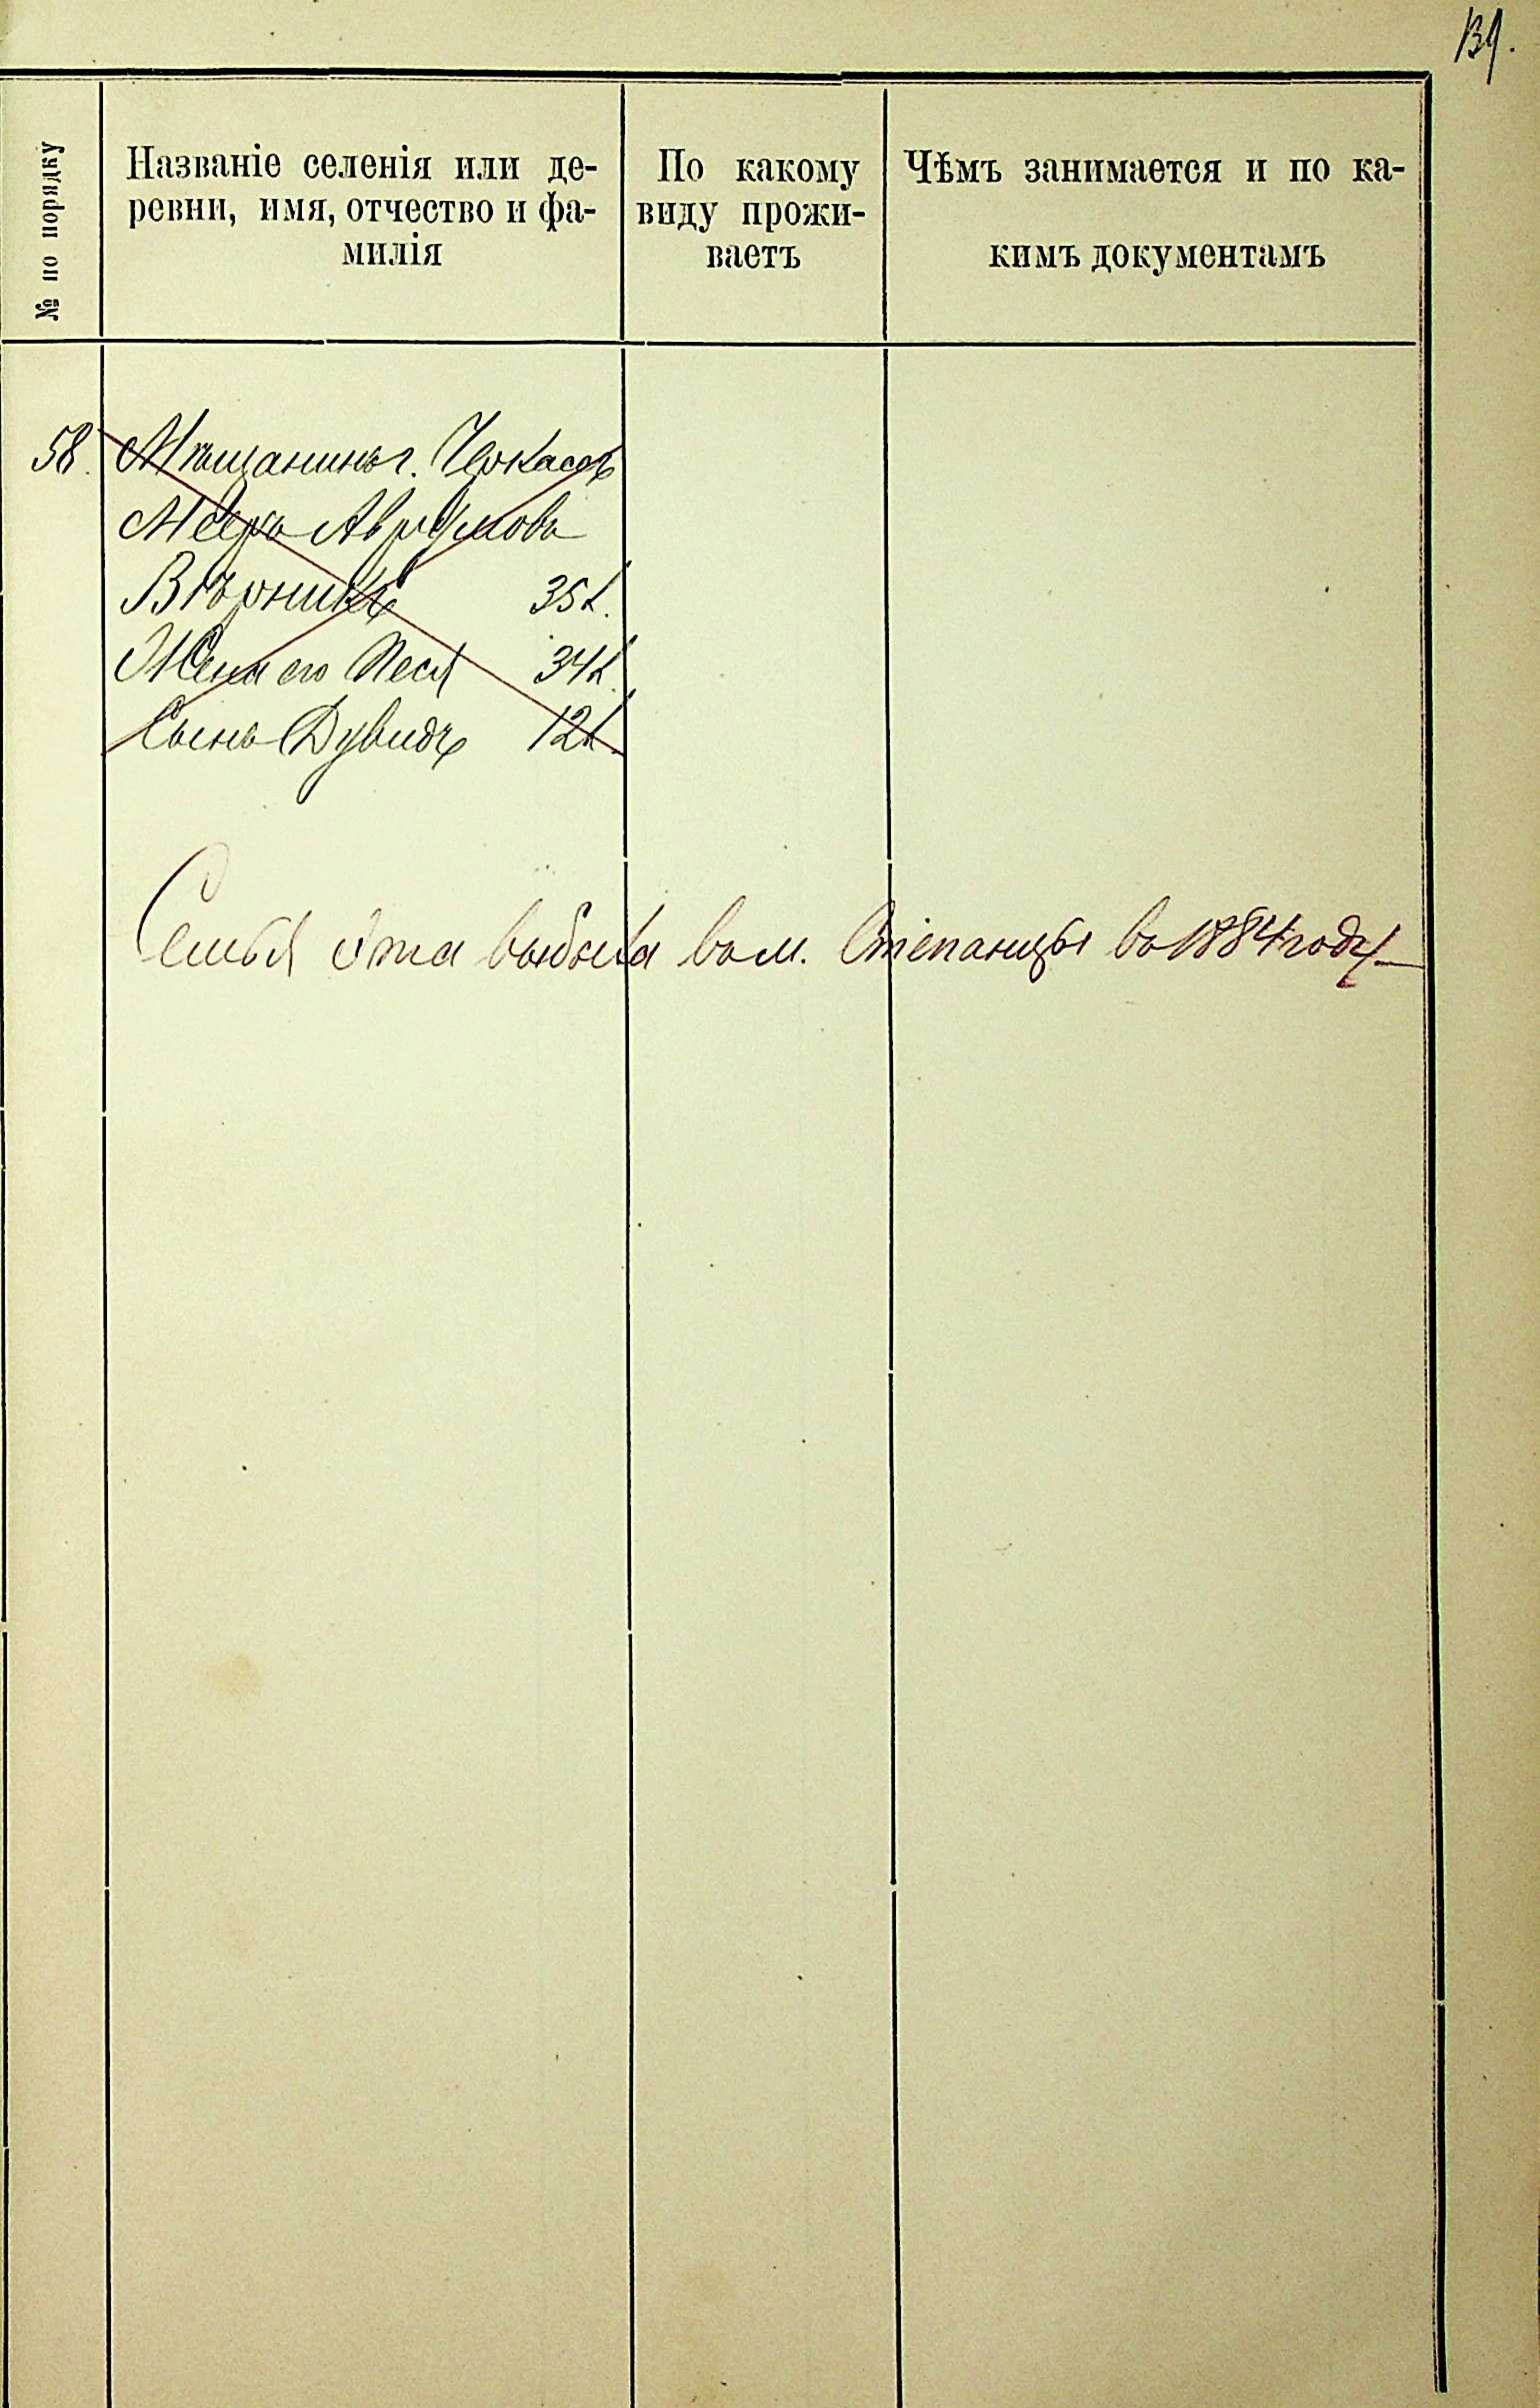 139.
№ по порядку
Названіе селенія или де-
ревни, имя, отчество и фа-
милія
По какому
виду прожи-
ваетъ
Чѣмъ занимается и по ка-
кимъ документамъ
58. Мѣщанинъ г. Черкассъ
Мееръ Аврумовъ
Вѣрникъ 35 л.
Жена его Песя 34 л.
Сынъ Дувидъ 12 л.
Семья эта выбыла въ м. Степанцы въ 1884 году